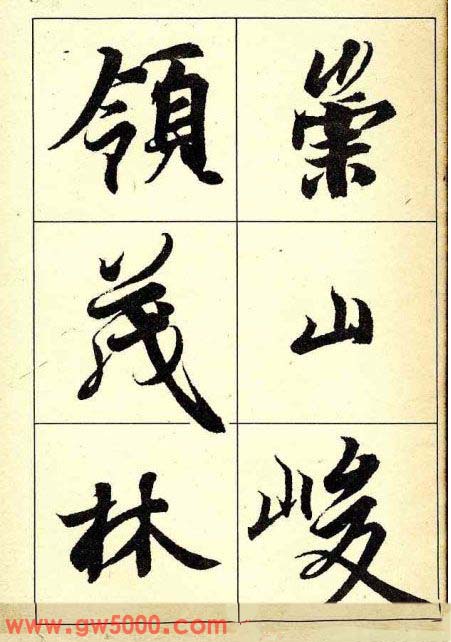 崇山峻
領茂林
www.gw5000.com